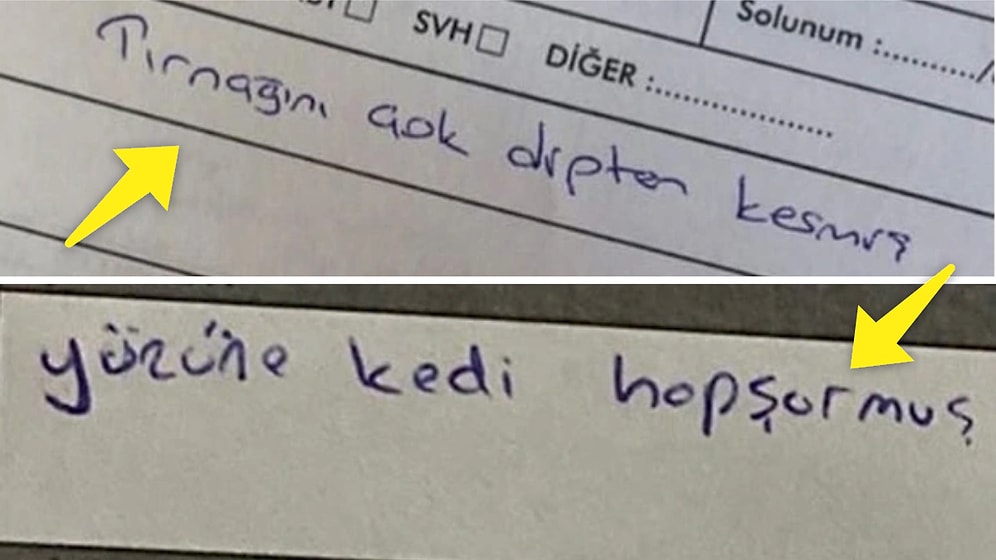 SVH DİĞER :.................... Solunum :............/
Tırnağını çok dipten kesmiş
yüzüne kedi hopşurmuş